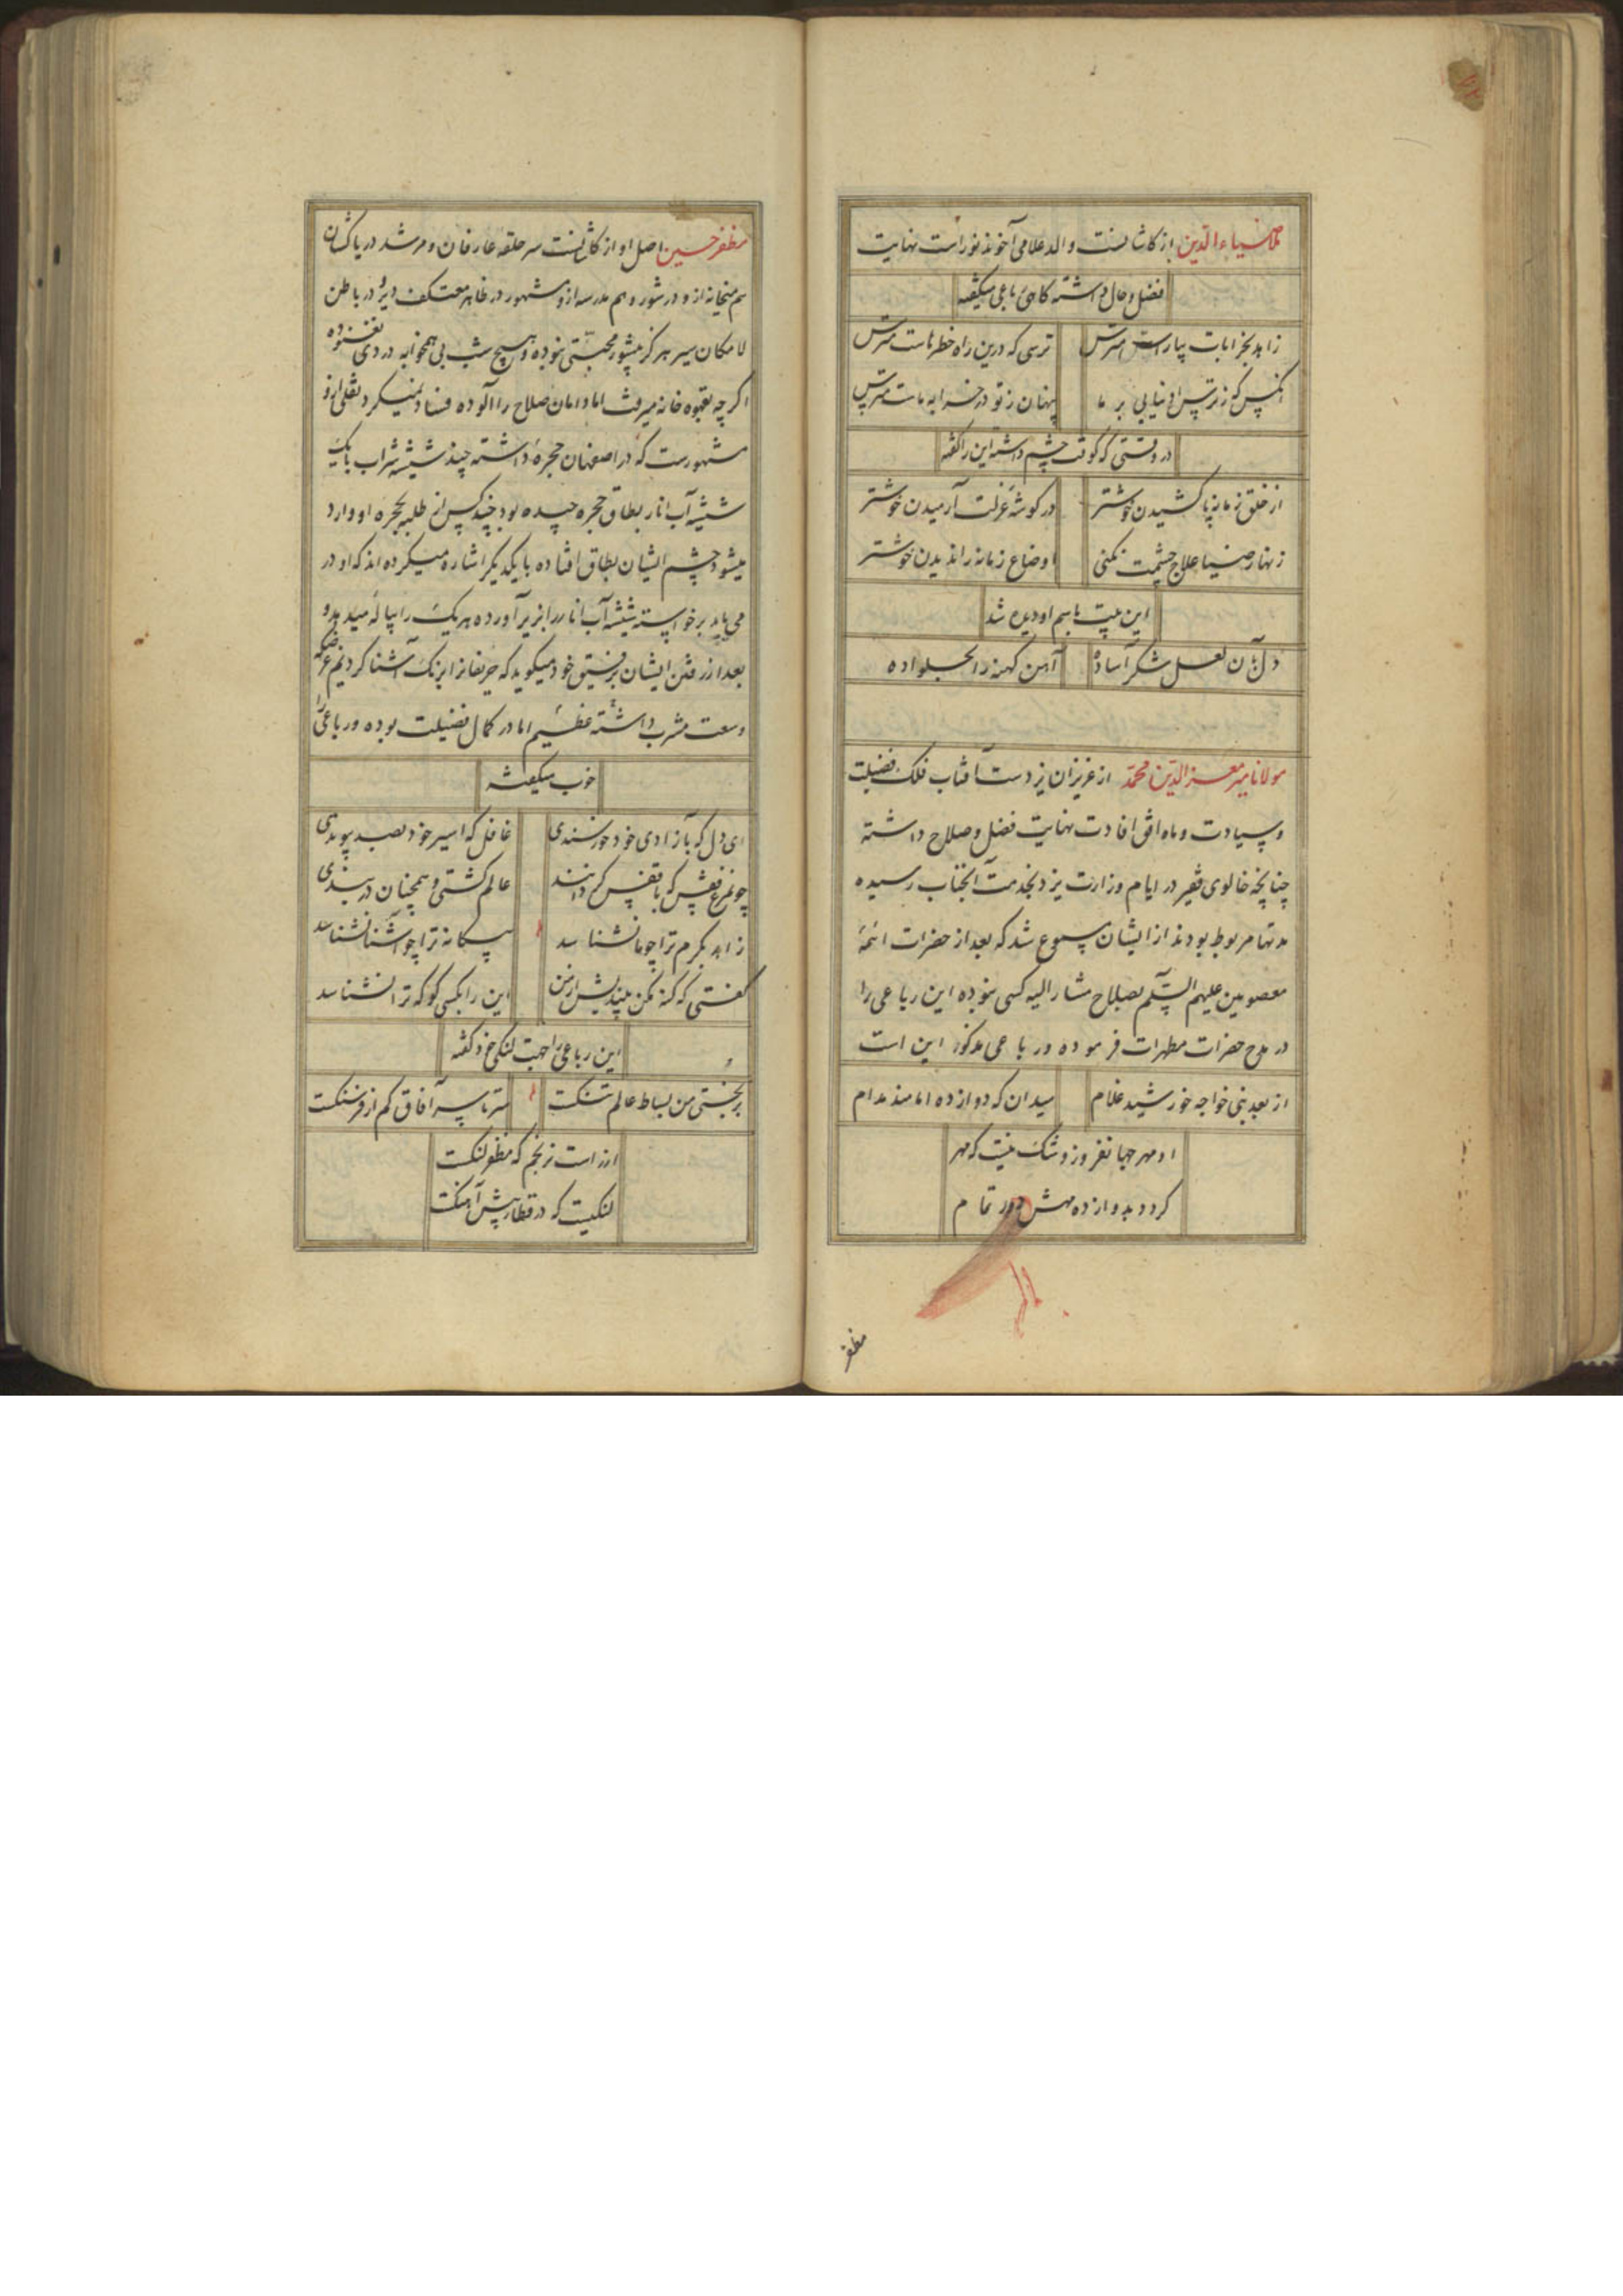 ملا ضیاء الدین از کاشانست والد علامی آخوند نوراست نهایت
فضل و حال داشته کاهی رباعی میکفته
زاهد بخرابات بیا راست مترس
ترسی که درین راه خطرهاست مترس
انکس که ز ترس او نیایی بر ما
پنهان ز تو در خرابه ماست مترس
در وقتی که کوفت چشم داشته این را کفته
از خلق زمانه پا کشیدن خوشتر
در کوشه عزلت آرمیدن خوشتر
زنهار ضیا علاج چشمت نکنی
اوضاع زمانه را ندیدن خوشتر
این بیت باسم او دیده شد
دل بآن لعل شکر آسا ده
آهن کهنه را بحلوا ده
مولانا میر معز الدین محمد از عزیزان یزدست آفتاب فلک فضیلت
و سیادت و ماه افق افادت نهایت فضل و صلاح داشته
چنانچه خالوی فقیر در ایام وزارت یزد بخدمت آنجناب رسیده
مدتها مربوط بودند از ایشان مسموع شد که بعد از حضرات ائمهٔ
معصومین علیهم السلام بصلاح مشار الیه کسی نبوده این رباعی را
در مدح حضرات مطهرات فرموده و رباعی مذکور این است
از بعد نبی خواجه خورشید غلام
میدان که دوازده امامند مدام
او مهر جهانفروز و شک نیست که مهر
کردد بدوازده مهش دور تمام
مظفر
مظفر حسین اصل او از کاشانست سر حلقه عارفان و مرشد دریاکشان
هم میخانه ازو در شور و هم مدرسه ازو مشهور در ظاهر معتکف دیر و در باطن
لامکان سیر هرکز بیشور محبتی نبوده و هیچ شب بی همخوابه دردی نغنوده
اکرچه بقهوه خانه میرفت اما دامان صلاح را آلوده فساد نمیکرد نقلی ازو
مشهورست که در اصفهان حجرهٔ داشته چند شیشه شراب با یک
شیشه آب انار بطاق حجره چیده بود چند کس از طلبه بحجره او وارد
میشود چشم ایشان بطاق افتاده با یکدیکر اشاره میکرده اند که او در
می یابد برخواسته شیشه آب انار را بزیر آورده هر یک را پیاله میدهد و
بعد از رفتن ایشان برفیق خود میکوید که حریفانرا برنک آشنا کردیم غرضکه
وسعت مشرب داشته عظیم اما در کمال فضیلت بوده و رباعی را
خوب میکفته
ای دل که بآزادی خود خورسندی
غافل که اسیر خود بصد پیوندی
چو مرغ قفس که با قفس کردانند
عالم کشتی و همچنان در بندی
زاهد بکرم ترا چو ما نشناسد
بیکانه ترا چو آشنا نشناسد
کفتی که کنه مکن بیندیش از من
این را بکسی کو که ترا نشناسد
این رباعی را جهت لنکی خود کفته
بر بختی من بساط عالم تنکست
سر تا سر آفاق کم از فرسنکست
ارزاست برنجم که مظفر لنکست
لنکیست که در قطار پیش آهنکست